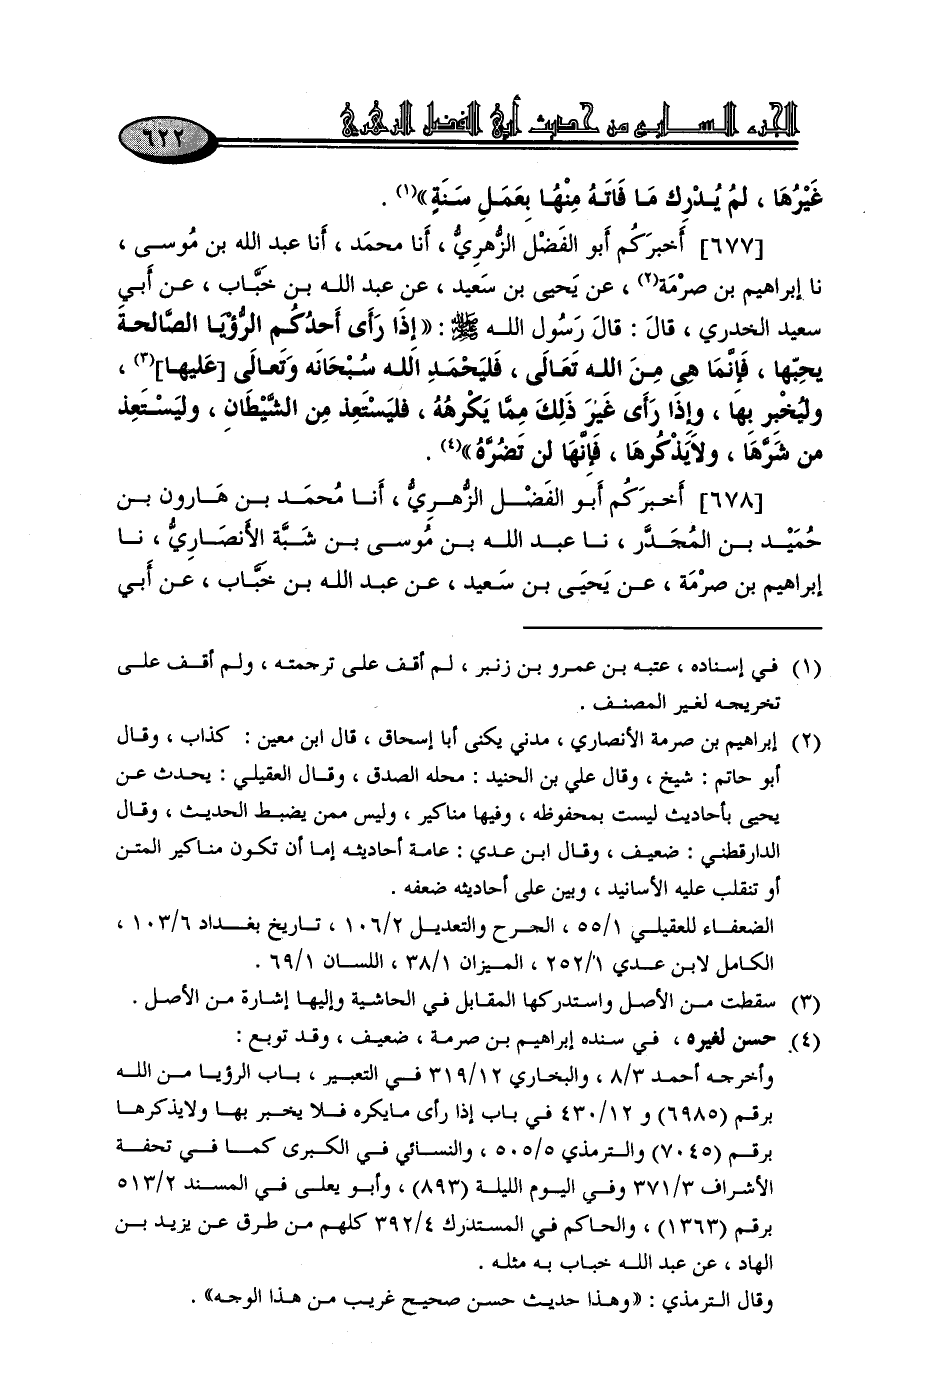 الجزء السابع من حديث أبي الفضل الزهري
٦٢٢
غَيْرُهَا ، لَمْ يُدْرِك مَا فَاتَهُ مِنْهَا بِعَمَلِ سَنَةٍ»(١) .
[٦٧٧] أَخبرَكُم أبو الفَضْل الزُّهرِيُّ ، أَنا محمَد ، أَنا عبد الله بن مُوسى ،
نا إبراهيم بن صرْمَة(٢) ، عن يَحيى بن سَعيد ، عن عبد الله بن خبَّاب ، عن أَبي
سعيد الخدري ، قالَ : قالَ رَسُول الله ﷺ : «إذَا رَأى أَحدُكُم الرُّؤيَا الصَّالحةَ
يحبّها ، فَإنَّما هِى مِنَ الله تَعَالَى ، فَليَحْمَدِ الله سُبْحَانَه وَتَعالَى [عَليها](٣) ،
وليُخْبر بِها ، وإذَا رَأى غَيرَ ذَلِكَ مِمَّا يَكْرهُهُ ، فَليَسْتَعِذ مِن الشَّيْطَان ، وليَسْتَعِذ
من شَرَّهَا ، ولاَيَذْكُرهَا ، فَإنَّهَا لن تَضُرَّهُ»(٤) .
[٦٧٨] أَخبرَكُم أبو الفَضْل الزُّهريُّ ، أَنا مُحمَد بن هَارون بن
حُمَيْد بن المُجَدَّر ، نا عبد الله بن مُوسى بن شَبَّة الأَنصَاريُّ ، نا
إبراهيم بن صرْمَة ، عن يَحيَى بن سَعيد ، عن عبد الله بن خبَّاب ، عن أَبي
(١) في إسناده ، عتبه بن عمرو بن زنبر ، لم أقف على ترجمته ، ولم أقف على
تخريجه لغير المصنف .
(٢) إبراهيم بن صرمة الأنصاري ، مدني يكنى أبا إسحاق ، قال ابن معين : كذاب ، وقال
أبو حاتم : شيخ ، وقال علي بن الحنيد : محله الصدق ، وقال العقيلي : يحدث عن
يحيى بأحاديث ليست بمحفوظه ، وفيها مناكير ، وليس ممن يضبط الحديث ، وقال
الدارقطني : ضعيف ، وقال ابن عدي : عامة أحاديثه إما أن تكون مناكير المتن
أو تنقلب عليه الأسانيد ، وبين على أحاديثه ضعفه .
الضعفاء للعقيلي ٥٥/١ ، الجرح والتعديل ١٠٦/٢ ، تاريخ بغداد ١٠٣/٦ ،
الكامل لابن عدي ٢٥٢/١ ، الميزان ٣٨/١ ، اللسان ٦٩/١ .
(٣) سقطت من الأصل واستدركها المقابل في الحاشية وإليها إشارة من الأصل .
(٤) حسن لغيره ، في سنده إبراهيم بن صرمة ، ضعيف ، وقد توبع :
وأخرجه أحمد ٨/٣ ، والبخاري ٣١٩/١٢ في التعبير ، باب الرؤيا من الله
برقم (٦٩٨٥) و ٤٣٠/١٢ في باب إذا رأى مايكره فلا يخبر بها ولايذكرها
برقم (٧٠٤٥) والترمذي ٥٠٥/٥ ، والنسائي في الكبرى كما في تحفة
الأشراف ٣٧١/٣ وفي اليوم الليلة (٨٩٣) ، وأبو يعلى في المسند ٥١٣/٢
برقم (١٣٦٣) ، والحاكم في المستدرك ٣٩٢/٤ كلهم من طرق عن يزيد بن
الهاد ، عن عبد الله خباب به مثله .
وقال الترمذي : «وهذا حديث حسن صحيح غريب من هذا الوجه» .